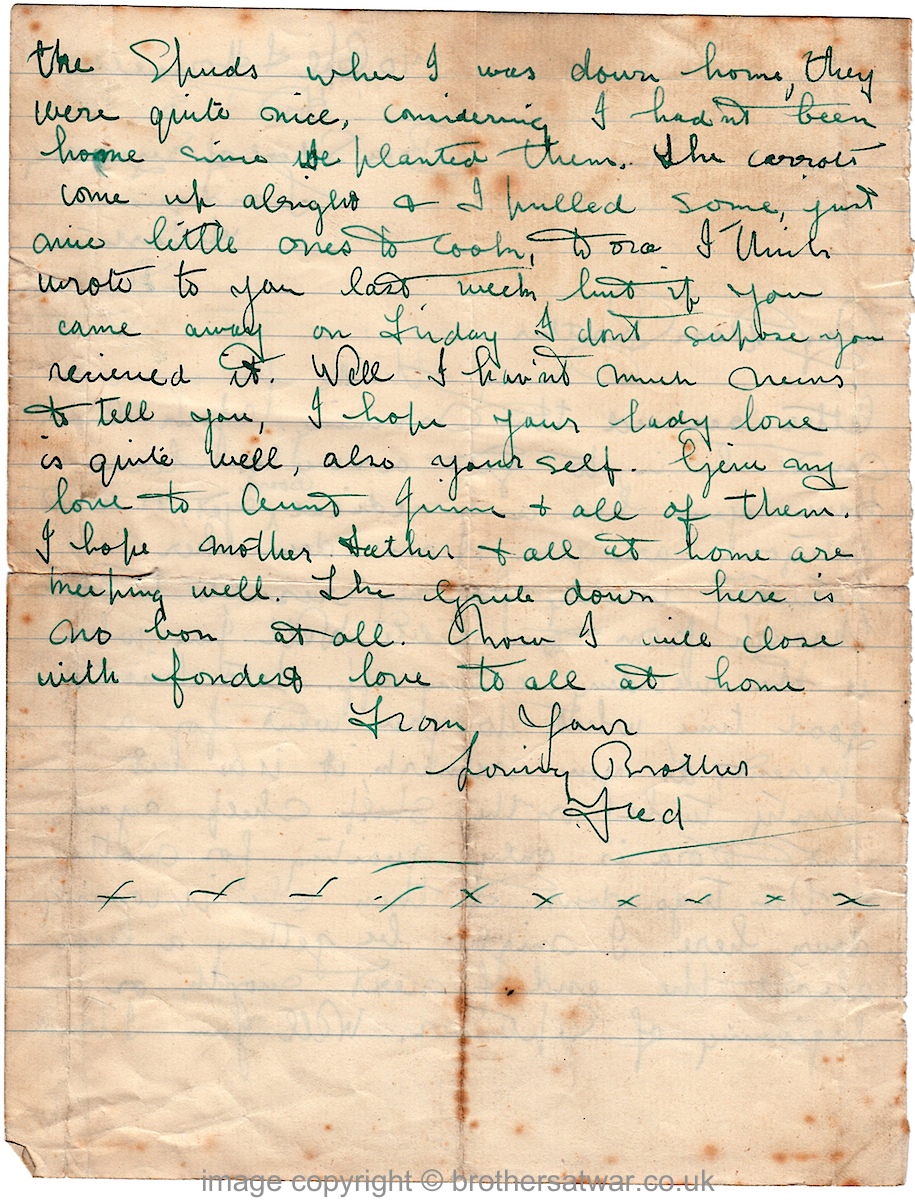 the Spuds when I was down home, they
were quite nice, considering I hadnt been
home since We planted them. The carrots
come up alright & I pulled some, just
nice little ones to cook, I think
wrote to you last week but if you
came away on Friday I dont supose you
recieved it. Well I hav'nt much news
to tell you, I hope your lady love
is quite well, also your self. Give my
love to Aunt & all of them.
I hope mother Father & all at home are
keeping well. The Grub down here is
no bon at all. Now I will close
with fondest love to all at home
From Your
Loving Brother
Fred
x x x x x x x x x x
image copyright © brothersatwar.co.uk